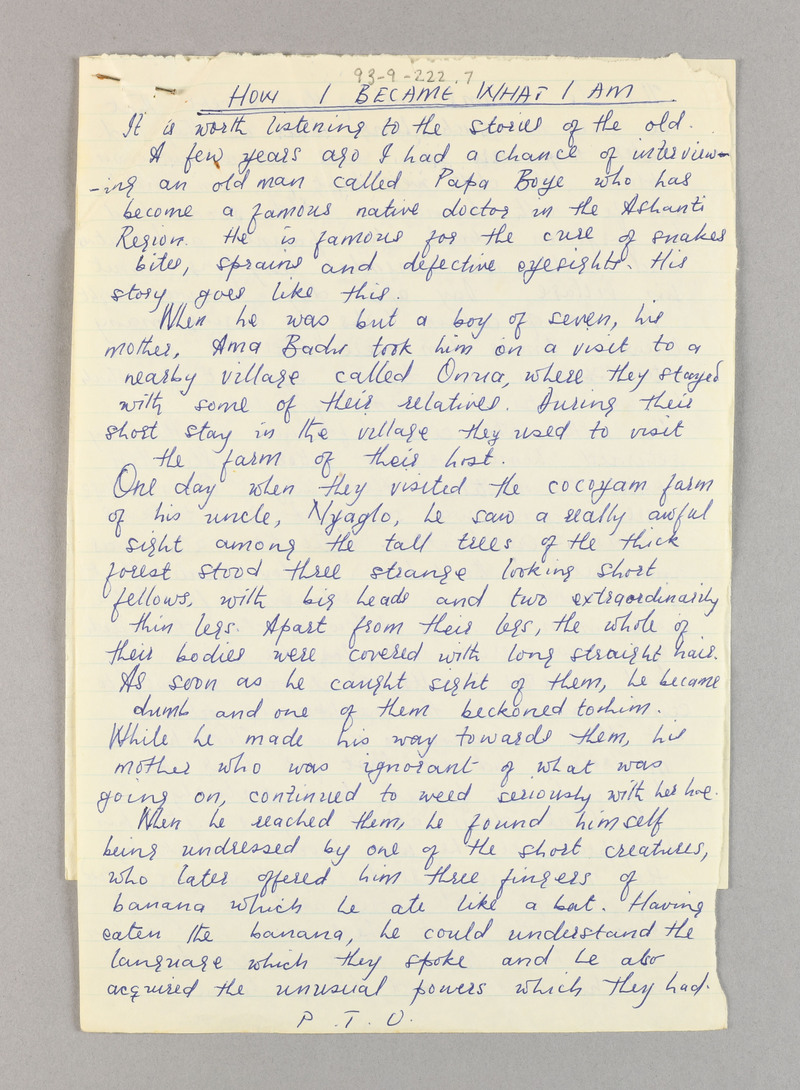 93-9-222.7
HOW I BECAME WHAT I AM
It is worth listening to the stories of the old.
A few years ago I had a chance of interview-
-ing an old man called Papa Boye who has
become a famous native doctor in the Ashanti
Region. He is famous for the cure of snakes
bites, sprains and defective eyesights. His
story goes like this.
When he was but a boy of seven, his
mother, Ama Badu took him on a visit to a
nearby village called Onua, where they stayed
with some of their relatives. During their
short stay in the village they used to visit
the farm of their host.
One day when they visited the cocoyam farm
of his uncle, Nyaglo, he saw a really awful
sight among the tall trees of the thick
forest stood three strange looking short
fellows, with big heads and two extraordinarily
thin legs. Apart from their legs, the whole of
their bodies were covered with long straight hair.
As soon as he caught sight of them, he became
dumb and one of them beckoned to him.
While he made his way towards them, his
mother who was ignorant of what was
going on, continued to weed seriously with her hoe.
When he reached them, he found himself
being undressed by one of the short creatures,
who later offered him three fingers of
banana which he ate like a bat. Having
eaten the banana, he could understand the
language which they spoke and he also
acquired the unusual powers which they had.
P. T. O.